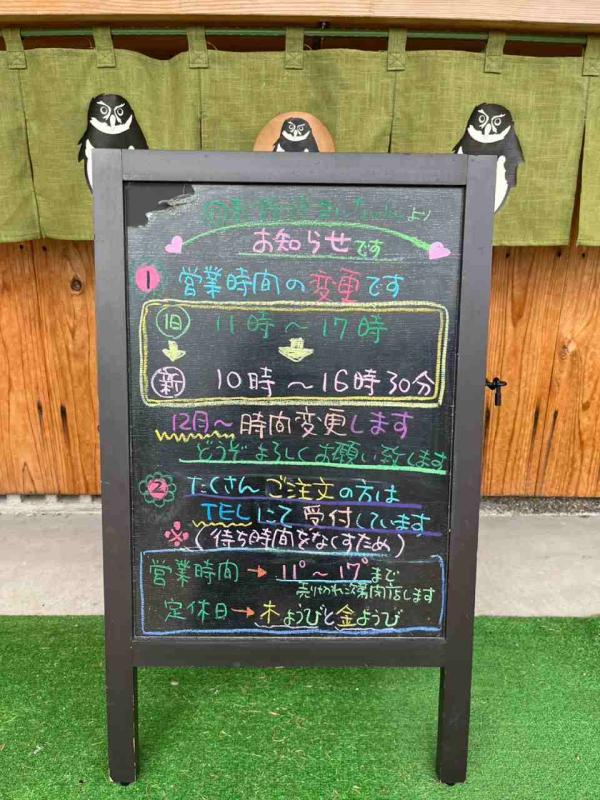 より
お知らせです
1 営業時間の変更です
旧 11時～17時
新 10時～16時30分
12月～時間変更します
どうぞよろしくお願い致します
2 たくさんご注文の方は
TELにて受付しています
※(待ち時間をなくすため)
営業時間→11°～17°まで
売り切れ次第閉店します
定休日→木ようびと金ようび